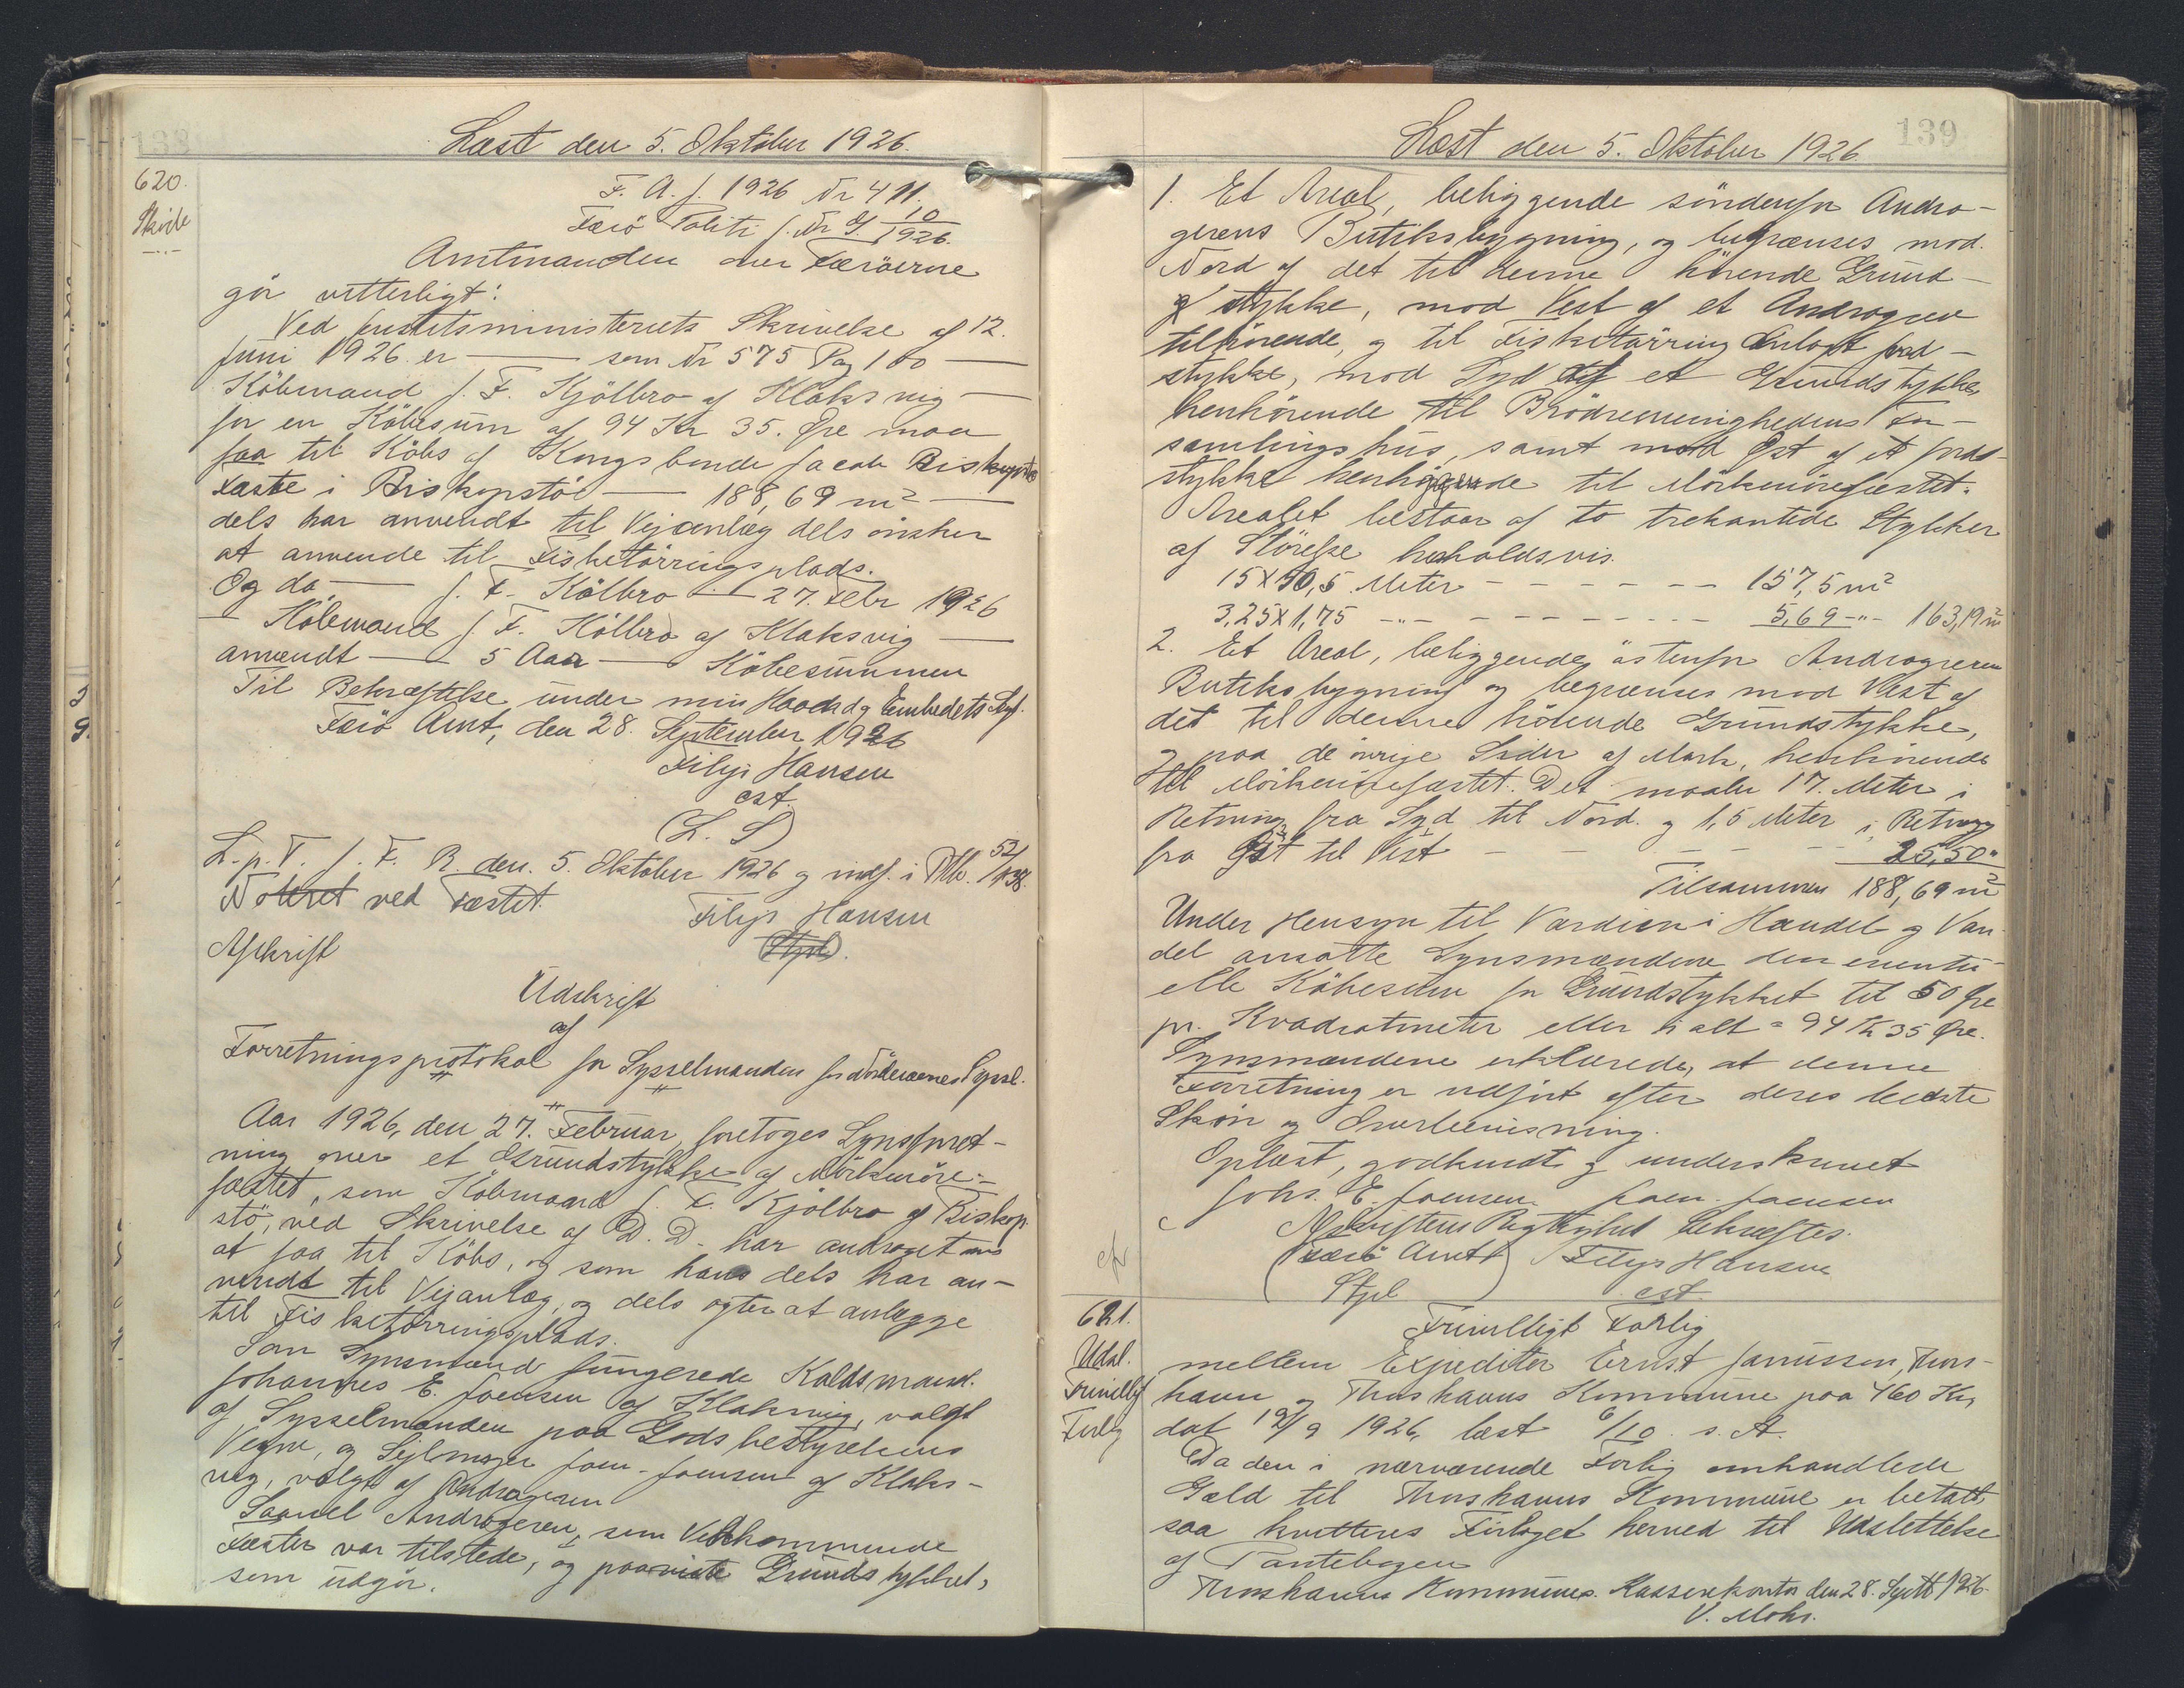 138
Læst den 5. Oktober 1926.
620.
Skøde
F. A. J. 1926 Nr 411.
Færö Politi J. Nr G. 10/1926.
Amtmanden over Færöerne
gör vitterligt:
Ved Justitsministeriets Skrivelse af 12.
Juni 1926 er — som Nr 575 Pag 100 —
Köbmand J. F. Kjölbro af Klaksvig —
for en Köbesum af 94 Kr 35. Øre maa
faa til Köbs af Kongsbonde Jacob Biskopstö
Fæste i Biskopstöe — 188,69 m² —
dels har anvendt til Vejanlæg dels önsker
at anvende til Fisketörringsplads.
Og da — J. F. Kölbro — 27. Febr 1926
— Köbmand J. F. Kölbro af Klaksvig —
anvendt — 5 Aar — Köbesummen
Til Bekræftelse under min Haand og Embedets Segl.
Færö Amt, den 28. September 1926
Filip Hansen
cst.
(L. S)
L. p. T. f. F. R. den 5. Oktober 1926 og indf. i Ptb. 52/138.
Noteret ved Fæstet.
Filip Hansen
(Stpl).
Afskrift
Udskrift
af
Forretningsprotokol for Sysselmanden for Norderöernes Syssel.
Aar 1926, den 27. Februar, foretoges Synsforret-
ning over et Grundstykke af Mörkeröre-
fæstet, som Köbmand J. F. Kjölbro af Biskop-
stö, ved Skrivelse af D. D. har androget om
at faa til Köbs, og som hans dels har an-
vendt til Vejanlæg, og dels agter at anlægge
til Fisketörringsplads.
Som Synsmænd fungerede Kaldsmand
Johannes E. Joensen af Klaksvig, valgt
af Sysselmanden paa Godsbestyrelsens
Vegne, og Sejlmager Joen. Joensen af Klaks-
vig, valgt af Andrageren
Saavel Andrageren, som Vedkommende
Fæster var tilstede, og paaviste Grundstykket,
som udgör.
139
Læst den 5. Oktober 1926
1. Et Areal, beliggende söndenfor Andra-
gerens Butiksbygning, og begrænses mod
Nord af det til denne hörende Grund-
stykke, mod Vest af et Andrageren
tilhörende, og til Fisketörring Anlagt Jord-
stykke, mod Syd af et Grundstykke,
henhörende til Brödremenighedens For-
samlingshus, samt mod Öst af et Jord-
stykke henhörende til Mörkenörefæstet.
Arealet bestaar af to trekantede Stykker
af Störelse henholdsvis.
15 x 10,5 Meter - - - - - - 157,5 m²
3,25 x 1,75 -"- - - - - - - - 5,69 -"- 163,19 m²
2. Et Areal, beliggende östenfor Andrageren
Butiksbygning og begrænses mod Vest af
det til denne hörende Grundstykke,
og paa de övrige Sider af Mark, henhörende
til Mörkenörefæstet. Det maaler 17. Meter i
Retning fra Syd til Nord. og 1,5 Meter i Retning
fra Öst til Vest - - - - - 25,50 "
Tilsammen 188,69 m²
Under Hensyn til Værdien i Handel og Van-
del ansatte Synsmændene den eventu-
elle Köbesum for Grundstykket til 50 Øre
pr. Kvadratmeter eller i alt = 94 Kr 35 Øre.
Synsmændene erklærede, at denne
Forretning er udfört efter deres bedste
Skön og Overbevisning.
Oplæst, godkendt og underskrevet
Johs. E. Joensen Joen. Joensen
Afskriftens Rigtighed bekræftes.
(Færö Amt) Filip Hansen
Stpl cst.
621.
Udsl.
Frivilligt
Forlig
Frivilligt Forlig
mellem Expeditör Ernst Janussen, Thors-
havn og Thorshavns Kommune paa 460 Kr,
dat 19/9 1926, læst 6/10 s. A.
Da den i nærværende Forlig omhandlede
Gæld til Thorshavns Kommune er betalt,
saa kvitteres Forliget herved til Udslettelse
af Pantebogen
Thorshavns Kommunes Kassekontor den 28. Septb 1926.
V. Mohr.